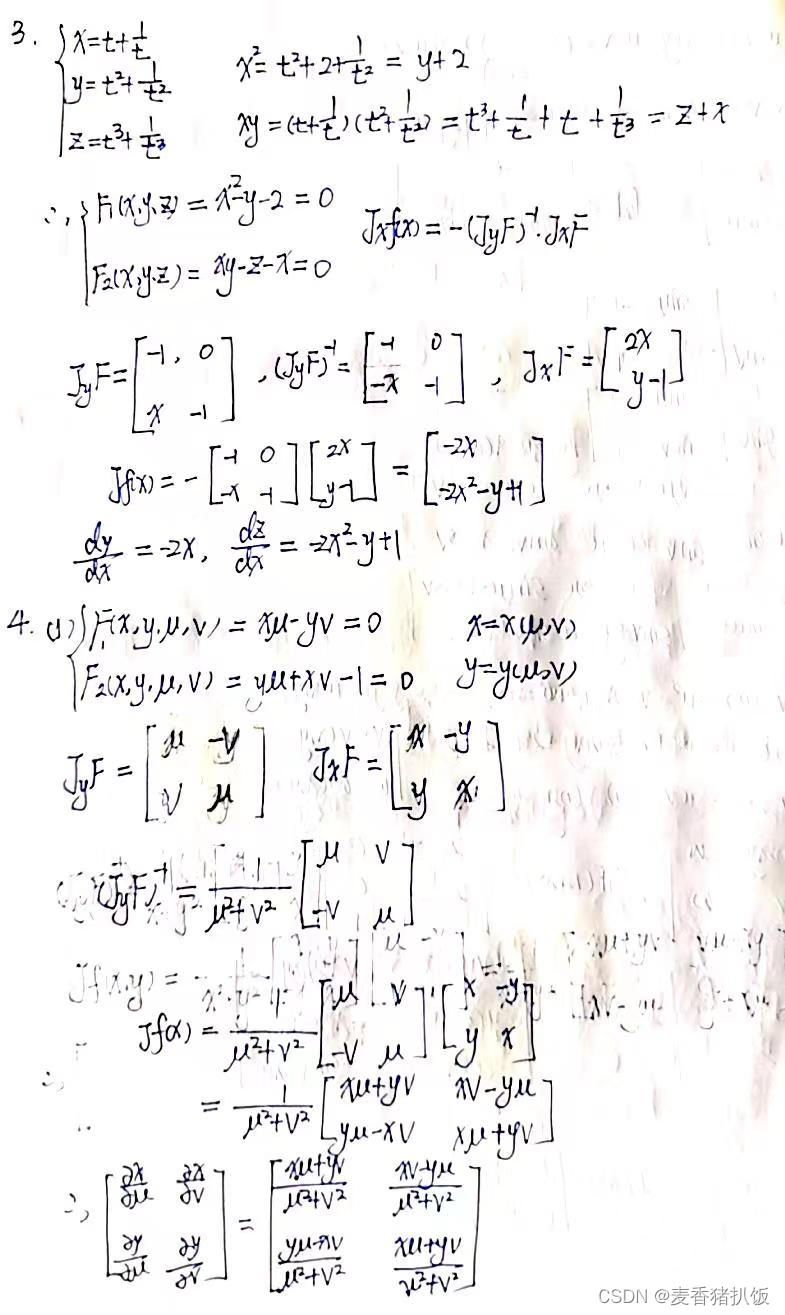 3. { x=t+1/t
y=t²+1/t²
z=t³+1/t³
x²=t²+2+1/t² = y+2
xy=(t+1/t)(t²+1/t²)=t³+1/t+t+1/t³=z+x
∴ { F₁(x,y,z)=x²-y-2=0
F₂(x,y,z)=xy-z-x=0
Jxf(x)=-(JyF)⁻¹·JxF
JyF=[-1, 0; x -1], (JyF)⁻¹=[-1 0; -x -1], JxF=[2x; y-1]
Jf(x)=-[-1 0; -x -1][2x; y-1]=[-2x; -2x²-y+1]
dy/dx=-2x, dz/dx=-2x²-y+1
4. (1) { F₁(x,y,μ,v)=xμ-yv=0 x=x(μ,v)
F₂(x,y,μ,v)=yμ+xv-1=0 y=y(μ,v)
JyF=[μ -v; v μ] JxF=[x -y; y x]
(JyF)⁻¹=1/(μ²+v²)[μ v; -v μ]
Jf(x,y)=-
Jf(x)=1/(μ²+v²)[μ v; -v μ]·[x -y; y x]
=1/(μ²+v²)[xμ+yv xv-yμ; yμ-xv xμ+yv]
∴ [∂x/∂μ ∂x/∂v; ∂y/∂μ ∂y/∂v]=[(xμ+yv)/(μ²+v²) (xv-yμ)/(μ²+v²); (yμ-xv)/(μ²+v²) (xμ+yv)/(μ²+v²)]
CSDN @麦香猪扒饭